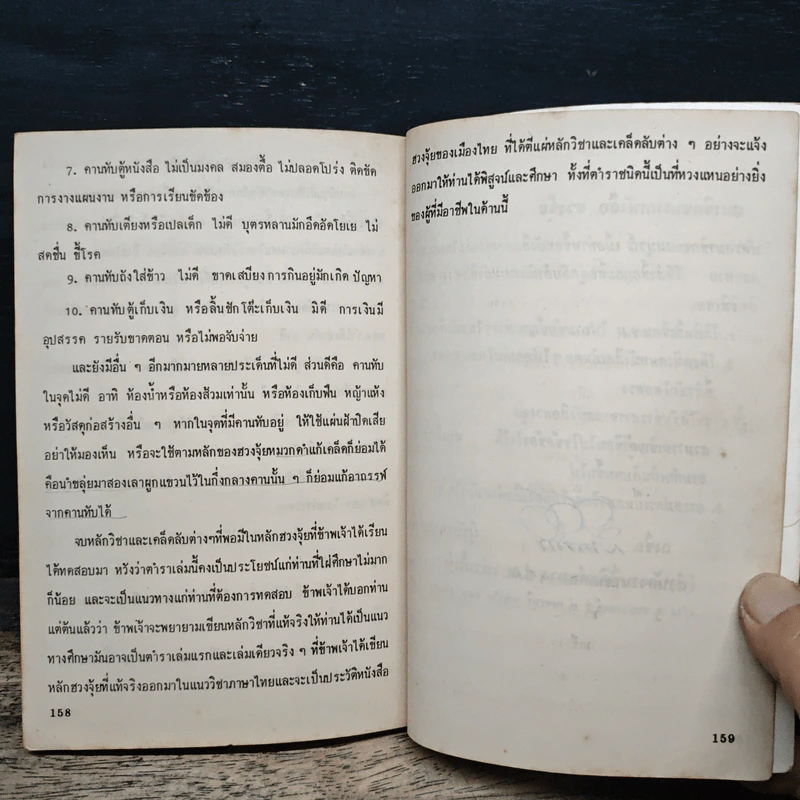 7. คานทับตู้หนังสือ ไม่เป็นมงคล สมองตื้อ ไม่ปลอดโปร่ง ติดขัด
การงางแผนงาน หรือการเรียนขัดข้อง
8. คานทับเตียงหรือเปลเด็ก ไม่ดี บุตรหลานมักอึดอัดโยเย ไม่
สดชื่น ขี้โรค
9. คานทับถังใส่ข้าว ไม่ดี ขาดเสบียง การกินอยู่มักเกิด ปัญหา
10. คานทับตู้เก็บเงิน หรือลิ้นชักโต๊ะเก็บเงิน มิดี การเงินมี
อุปสรรค รายรับขาดตอน หรือไม่พอจับจ่าย
และยังมีอื่น ๆ อีกมากมายหลายประเด็นที่ไม่ดี ส่วนดีคือ คานทับ
ในจุดไม่ดี อาทิ ห้องน้ำหรือห้องส้วมเท่านั้น หรือห้องเก็บฟืน หญ้าแห้ง
หรือวัสดุก่อสร้างอื่น ๆ หากในจุดที่มีคานทับอยู่ ให้ใช้แผ่นฝ้าปิดเสีย
อย่าให้มองเห็น หรือจะใช้ตามหลักของฮวงจุ้ยหมวกดำแก้เคล็ดก็ย่อมได้
คือนำขลุ่ยมาสองเลาผูกแขวนไว้ในกึ่งกลางคานนั้น ๆ ก็ย่อมแก้อาถรรพ์
จากคานทับได้
จบหลักวิชาและเคล็ดลับต่างๆที่พอมีในหลักฮวงจุ้ยที่ข้าพเจ้าได้เรียน
ได้ทดสอบมา หวังว่าตำราเล่มนี้คงเป็นประโยชน์แก่ท่านที่ใฝ่ศึกษาไม่มาก
ก็น้อย และจะเป็นแนวทางแก่ท่านที่ต้องการทดสอบ ข้าพเจ้าได้บอกท่าน
แต่ต้นแล้วว่า ข้าพเจ้าจะพยายามเขียนหลักวิชาที่แท้จริงให้ท่านได้เป็นแนว
ทางศึกษามันอาจเป็นตำราเล่มแรกและเล่มเดียวจริง ๆ ที่ข้าพเจ้าได้เขียน
หลักฮวงจุ้ยที่แท้จริงออกมาในแนววิชาภาษาไทยและจะเป็นประวัติหนังสือ
158
ฮวงจุ้ยของเมืองไทย ที่ได้ตีแผ่หลักวิชาและเคล็ดลับต่าง ๆ อย่างจะแจ้ง
ออกมาให้ท่านได้พิสูจน์และศึกษา ทั้งที่ตำราชนิดนี้เป็นที่หวงแหนอย่างยิ่ง
ของผู้ที่มีอาชีพในด้านนี้
159